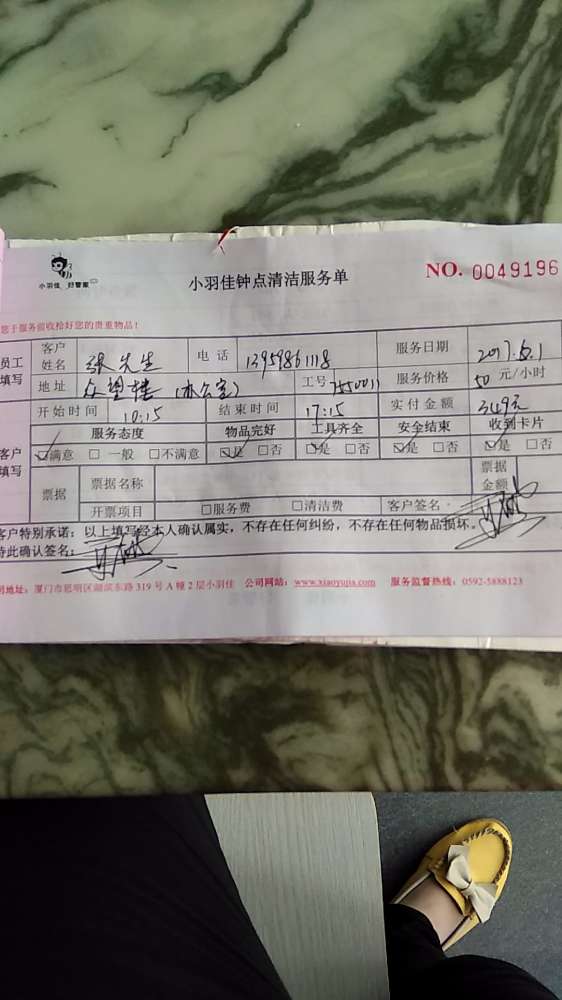 小羽佳 好管家
小羽佳钟点清洁服务单
NO. 0049196
您于服务前收拾好您的贵重物品!
员工填写 客户姓名 张先生 电话 13959861118 服务日期 2017.6.1
地址 众望楼(办公室) 工号 7550011 服务价格 50 元/小时
开始时间 10:15 结束时间 17:15 实付金额 349元
客户填写 服务态度 物品完好 工具齐全 安全结束 收到卡片
☑满意 □一般 □不满意 ☑是 □否 ☑是 □否 ☑是 □否 ☑是 □否
票据 票据名称 票据金额
开票项目 □服务费 □清洁费 客户签名:
客户特别承诺:以上填写经本人确认属实,不存在任何纠纷,不存在任何物品损坏。
特此确认签名:
司地址:厦门市思明区湖滨东路 319 号 A 幢 2 层小羽佳 公司网站:www.xiaoyujia.com 服务监督热线:0592-5888123